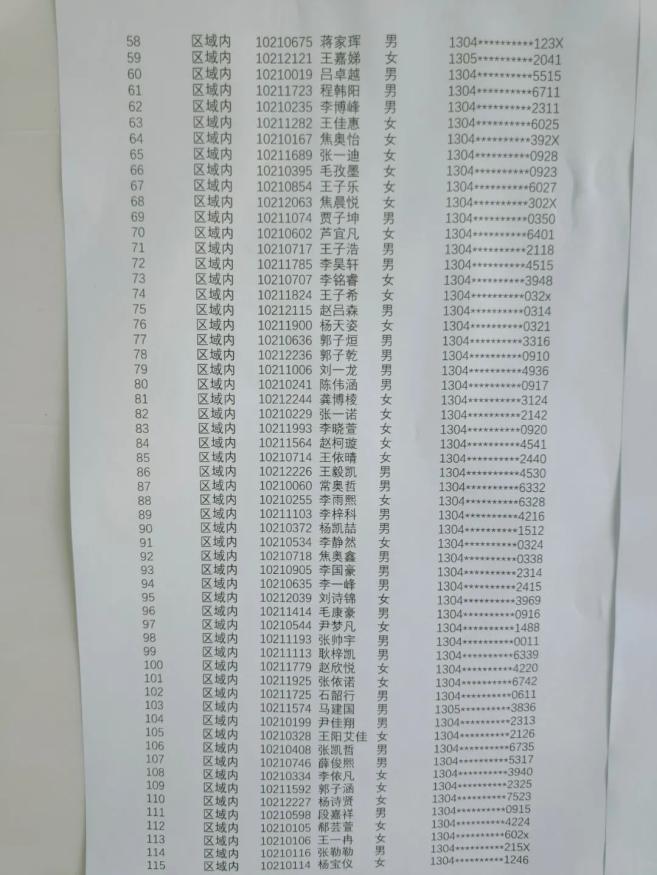 58 区域内 10210675 蒋家珲 男 1304**********123X
59 区域内 10212121 王嘉娣 女 1305**********2041
60 区域内 10210019 吕卓越 男 1304**********5515
61 区域内 10211723 程韩阳 男 1304**********6711
62 区域内 10210235 李博峰 男 1304**********2311
63 区域内 10211282 王佳惠 女 1304**********6025
64 区域内 10210167 焦奥怡 女 1304**********392X
65 区域内 10211689 张一迪 女 1304**********0928
66 区域内 10210395 毛孜墨 女 1304**********0923
67 区域内 10210854 王子乐 女 1304**********6027
68 区域内 10212063 焦晨悦 女 1304**********302X
69 区域内 10211074 贾子坤 男 1304**********0350
70 区域内 10210602 芦宜凡 女 1304**********6401
71 区域内 10210717 王子浩 男 1304**********2118
72 区域内 10211785 李昊轩 男 1304**********4515
73 区域内 10210707 李铭睿 女 1304**********3948
74 区域内 10211824 王子希 女 1304**********032x
75 区域内 10212115 赵吕森 男 1304**********0314
76 区域内 10211900 杨天姿 女 1304**********0321
77 区域内 10210636 郭子烜 男 1304**********3316
78 区域内 10212236 郭子乾 男 1304**********0910
79 区域内 10211006 刘一龙 男 1304**********4936
80 区域内 10210241 陈伟涵 男 1304**********0917
81 区域内 10212244 龚博棱 女 1304**********3124
82 区域内 10210229 张一诺 女 1304**********2142
83 区域内 10211993 李晓萱 女 1304**********0920
84 区域内 10211564 赵柯璇 女 1304**********4541
85 区域内 10210714 王依晴 女 1304**********2440
86 区域内 10212226 王毅凯 男 1304**********4530
87 区域内 10210060 常奥哲 男 1304**********6332
88 区域内 10210255 李雨熙 女 1304**********6328
89 区域内 10211103 李梓科 男 1304**********4216
90 区域内 10210372 杨凯喆 男 1304**********1512
91 区域内 10210534 李静然 女 1304**********0324
92 区域内 10210718 焦奥鑫 男 1304**********0338
93 区域内 10210905 李国豪 男 1304**********2314
94 区域内 10210635 李一峰 男 1304**********2415
95 区域内 10212039 刘诗锦 女 1304**********3969
96 区域内 10211414 毛康豪 男 1304**********0916
97 区域内 10210544 尹梦凡 女 1304**********1488
98 区域内 10211193 张帅宇 男 1304**********0011
99 区域内 10211113 耿梓凯 男 1304**********6339
100 区域内 10211779 赵欣悦 女 1304**********4220
101 区域内 10211925 张依诺 女 1304**********6742
102 区域内 10211725 石韶行 男 1304**********0611
103 区域内 10211574 马建国 男 1305**********3836
104 区域内 10210199 尹佳翔 男 1304**********2313
105 区域内 10210328 王阳艾佳 女 1304**********2126
106 区域内 10210408 张凯哲 男 1304**********6735
107 区域内 10210746 薛俊熙 男 1304**********5317
108 区域内 10210334 李依凡 女 1304**********3940
109 区域内 10211592 郭子涵 女 1304**********2325
110 区域内 10212227 杨诗贤 女 1304**********7523
111 区域内 10210598 段嘉祥 男 1304**********0915
112 区域内 10210105 郗芸萱 女 1304**********4224
113 区域内 10210106 王一冉 女 1304**********602x
114 区域内 10210116 张勒勒 男 1304**********215X
115 区域内 10210114 杨宝仪 女 1304**********1246